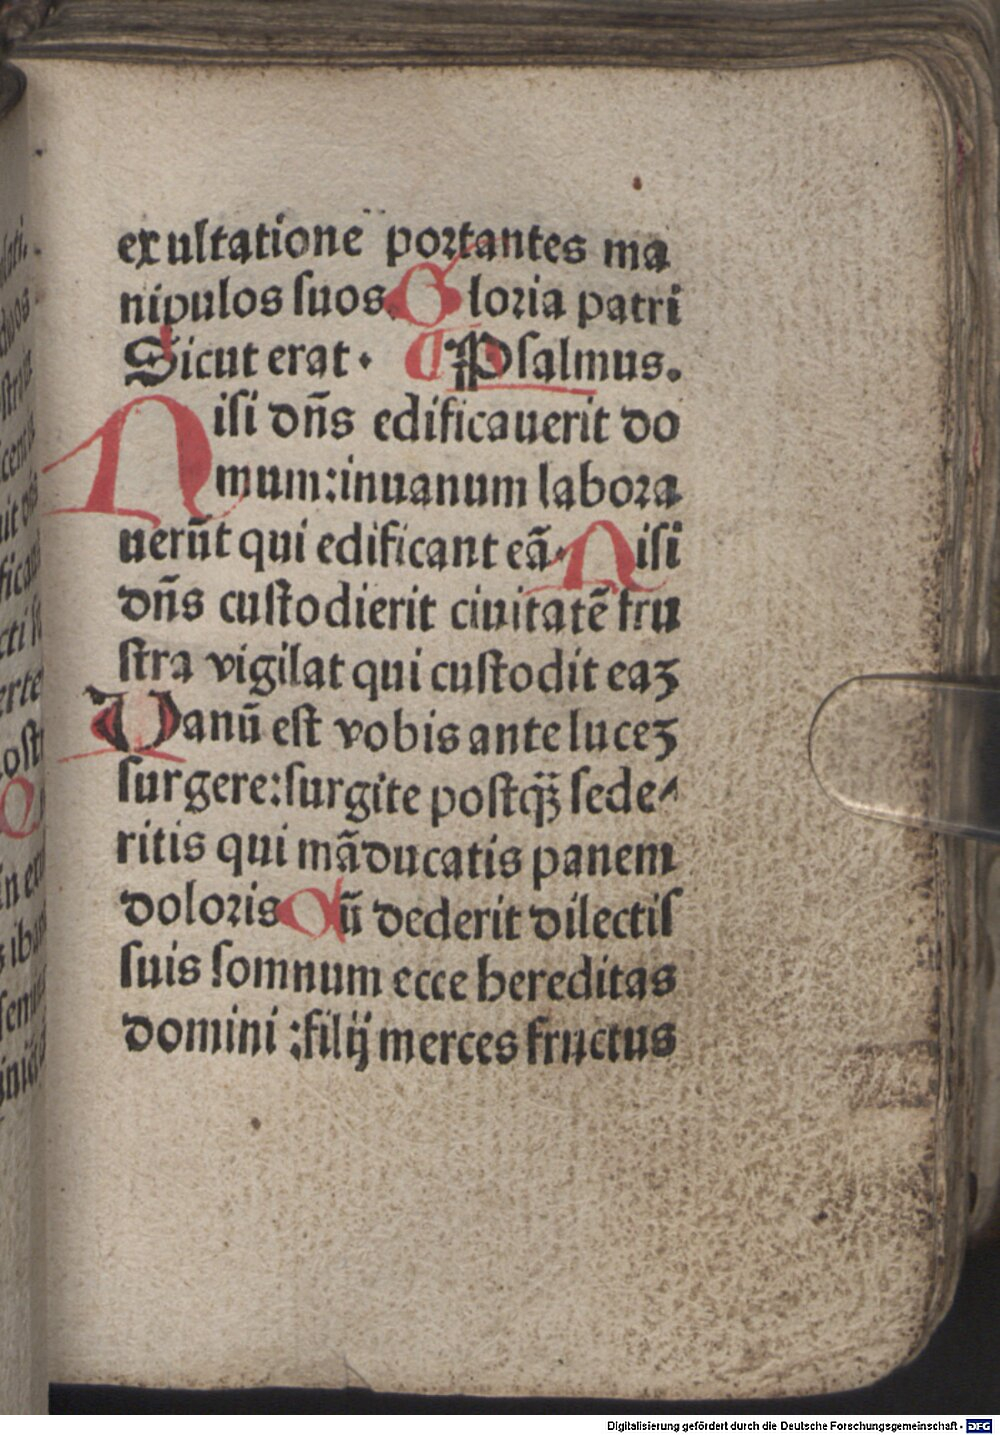 exultatione portantes ma
nipulos suos. Gloria patri
Sicut erat. ¶ Psalmus.
Nisi dn̄s edificauerit do
mum: inuanum labora
uerūt qui edificant eā. Nisi
dn̄s custodierit ciuitatē fru
stra vigilat qui custodit eaʒ
Vanū est vobis ante luceʒ
surgere: surgite postq̄ʒ sede
ritis qui māducatis panem
doloris Cū dederit dilectis
suis somnum ecce hereditas
domini : filij merces fructus
Digitalisierung gefördert durch die Deutsche Forschungsgemeinschaft - DFG